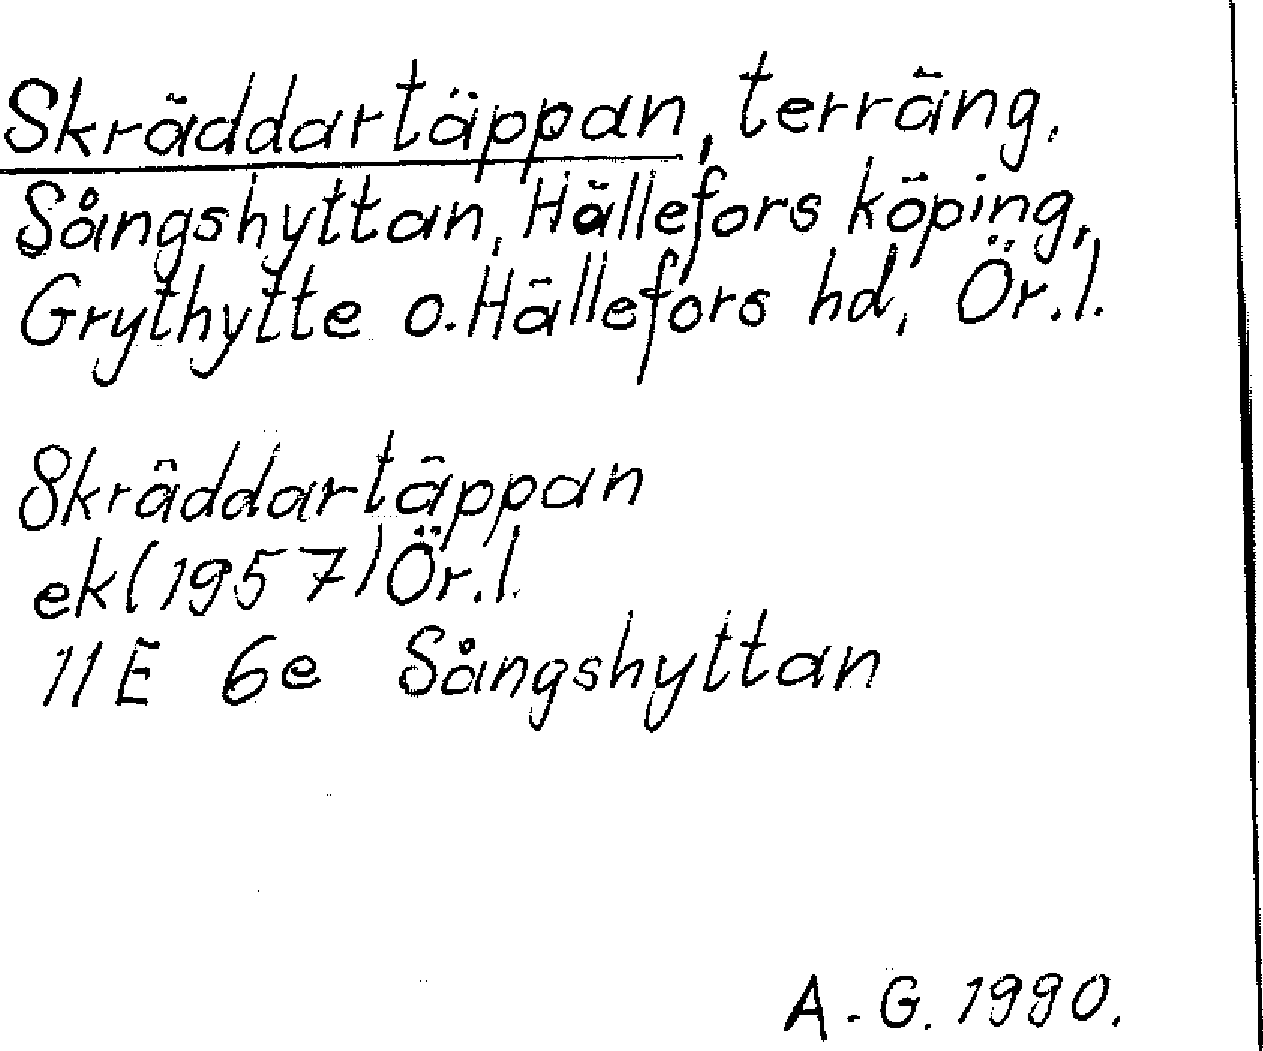 Skräddartäppan, terräng,
Sångshyttan, Hällefors köping,
Grythytte o. Hällefors hd, Ör.l.
Skräddartäppan
ek (1957) Ör.l.
11E 6e Sångshyttan
A-G. 1990.